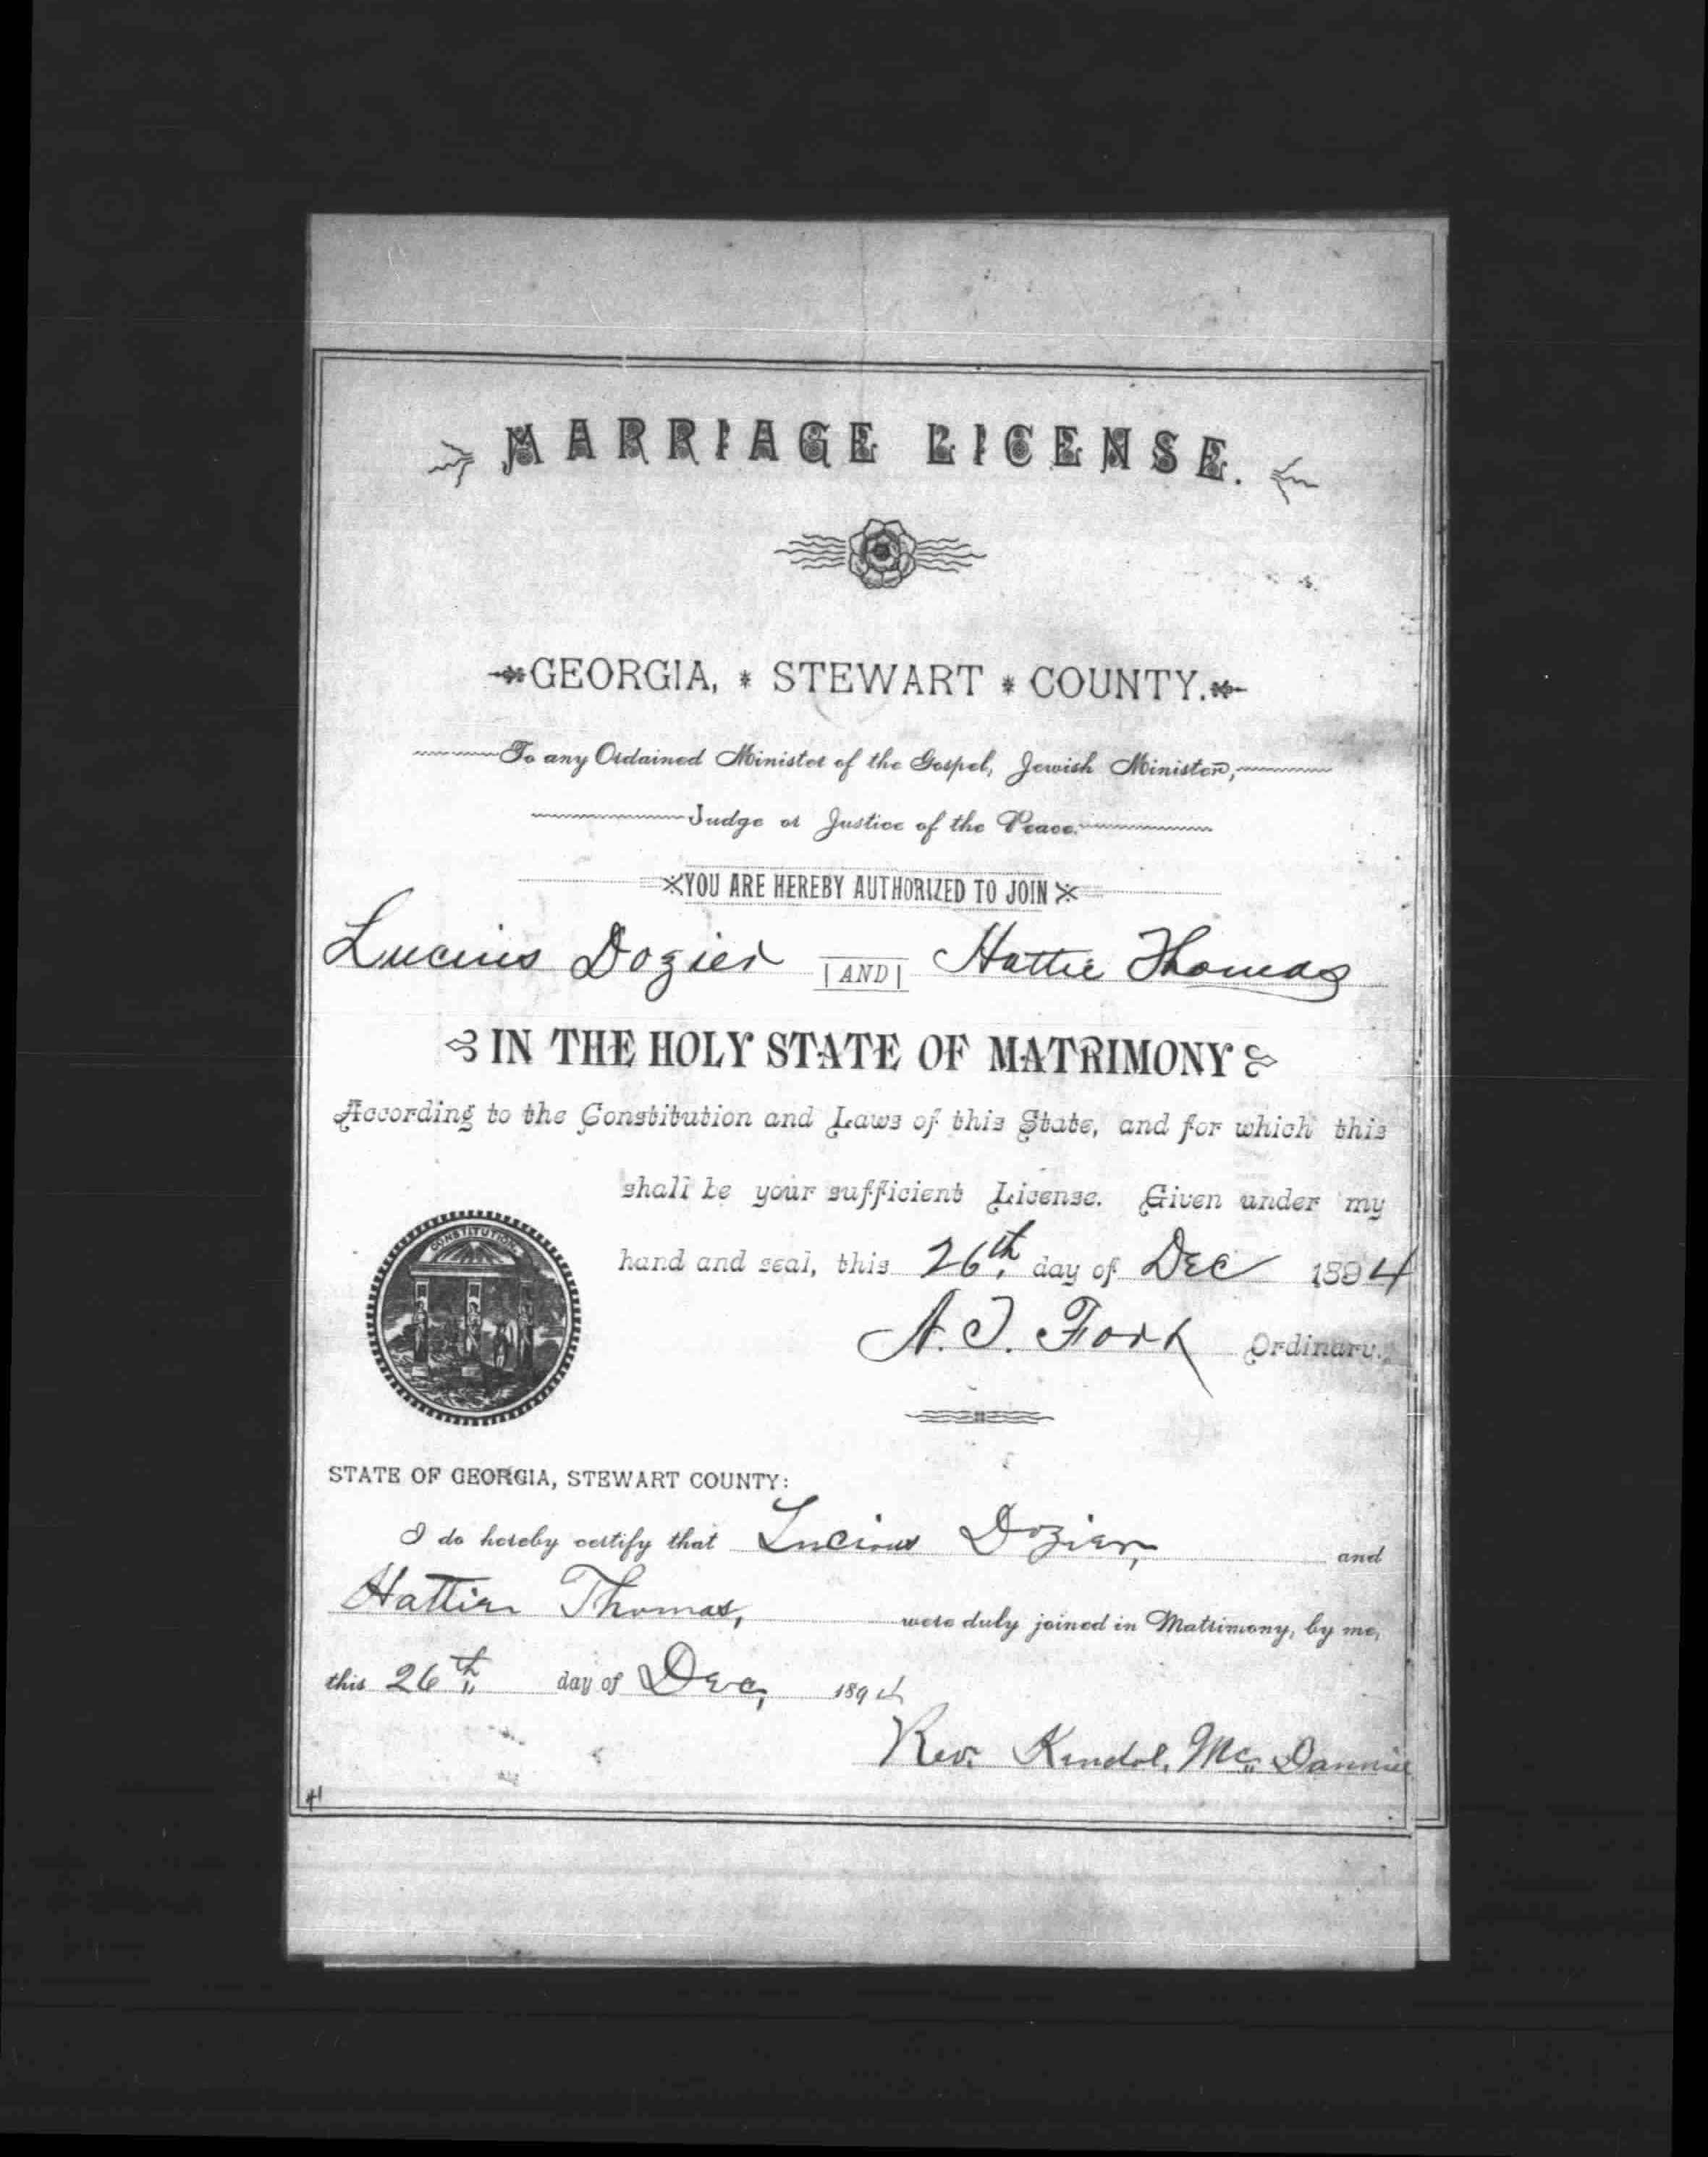 MARRIAGE LICENSE.
GEORGIA, * STEWART * COUNTY.
To any Ordained Minister of the Gospel, Jewish Minister,
Judge or Justice of the Peace.
YOU ARE HEREBY AUTHORIZED TO JOIN
Lucius Dozier AND Hattie Thomas
IN THE HOLY STATE OF MATRIMONY
According to the Constitution and Laws of this State, and for which this
shall be your sufficient License. Given under my
CONSTITUTION
hand and seal, this 26th day of Dec 1894
A. T. Fort Ordinary.
STATE OF GEORGIA, STEWART COUNTY:
I do hereby certify that Lucious Dozier, and
Hattie Thomas, were duly joined in Matrimony, by me,
this 26th day of Dec, 1894
Rev. Kendol. Mc Dannie
41